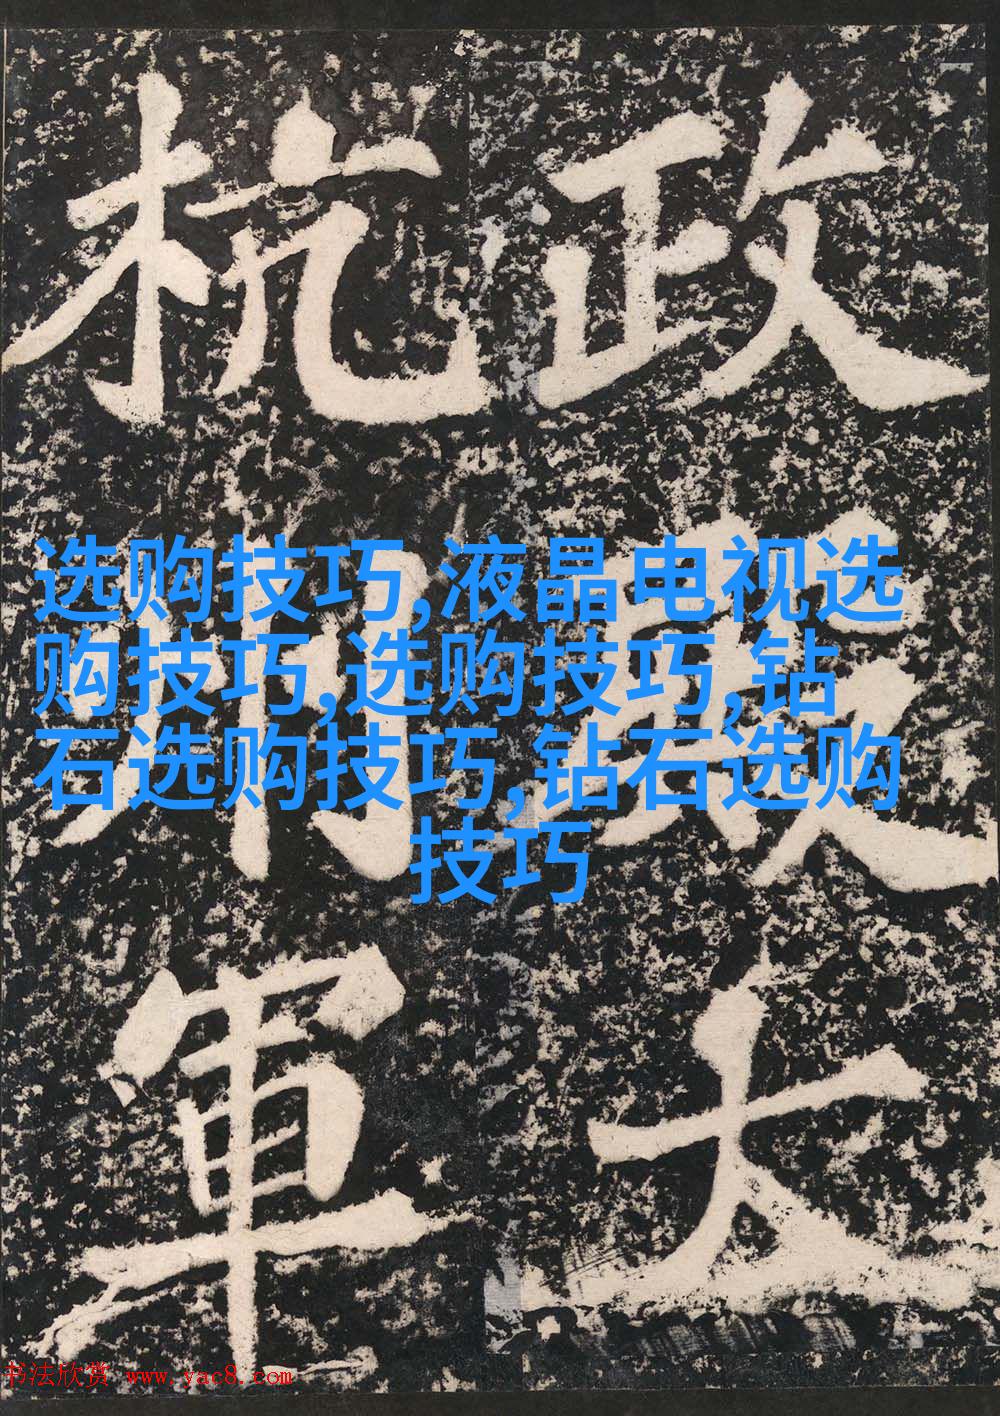 政殿大
杭州軍
选购技巧,液晶电视选
购技巧,选购技巧,钻
石选购技巧,钻石选购
技巧
书法欣赏 www.yac8.com